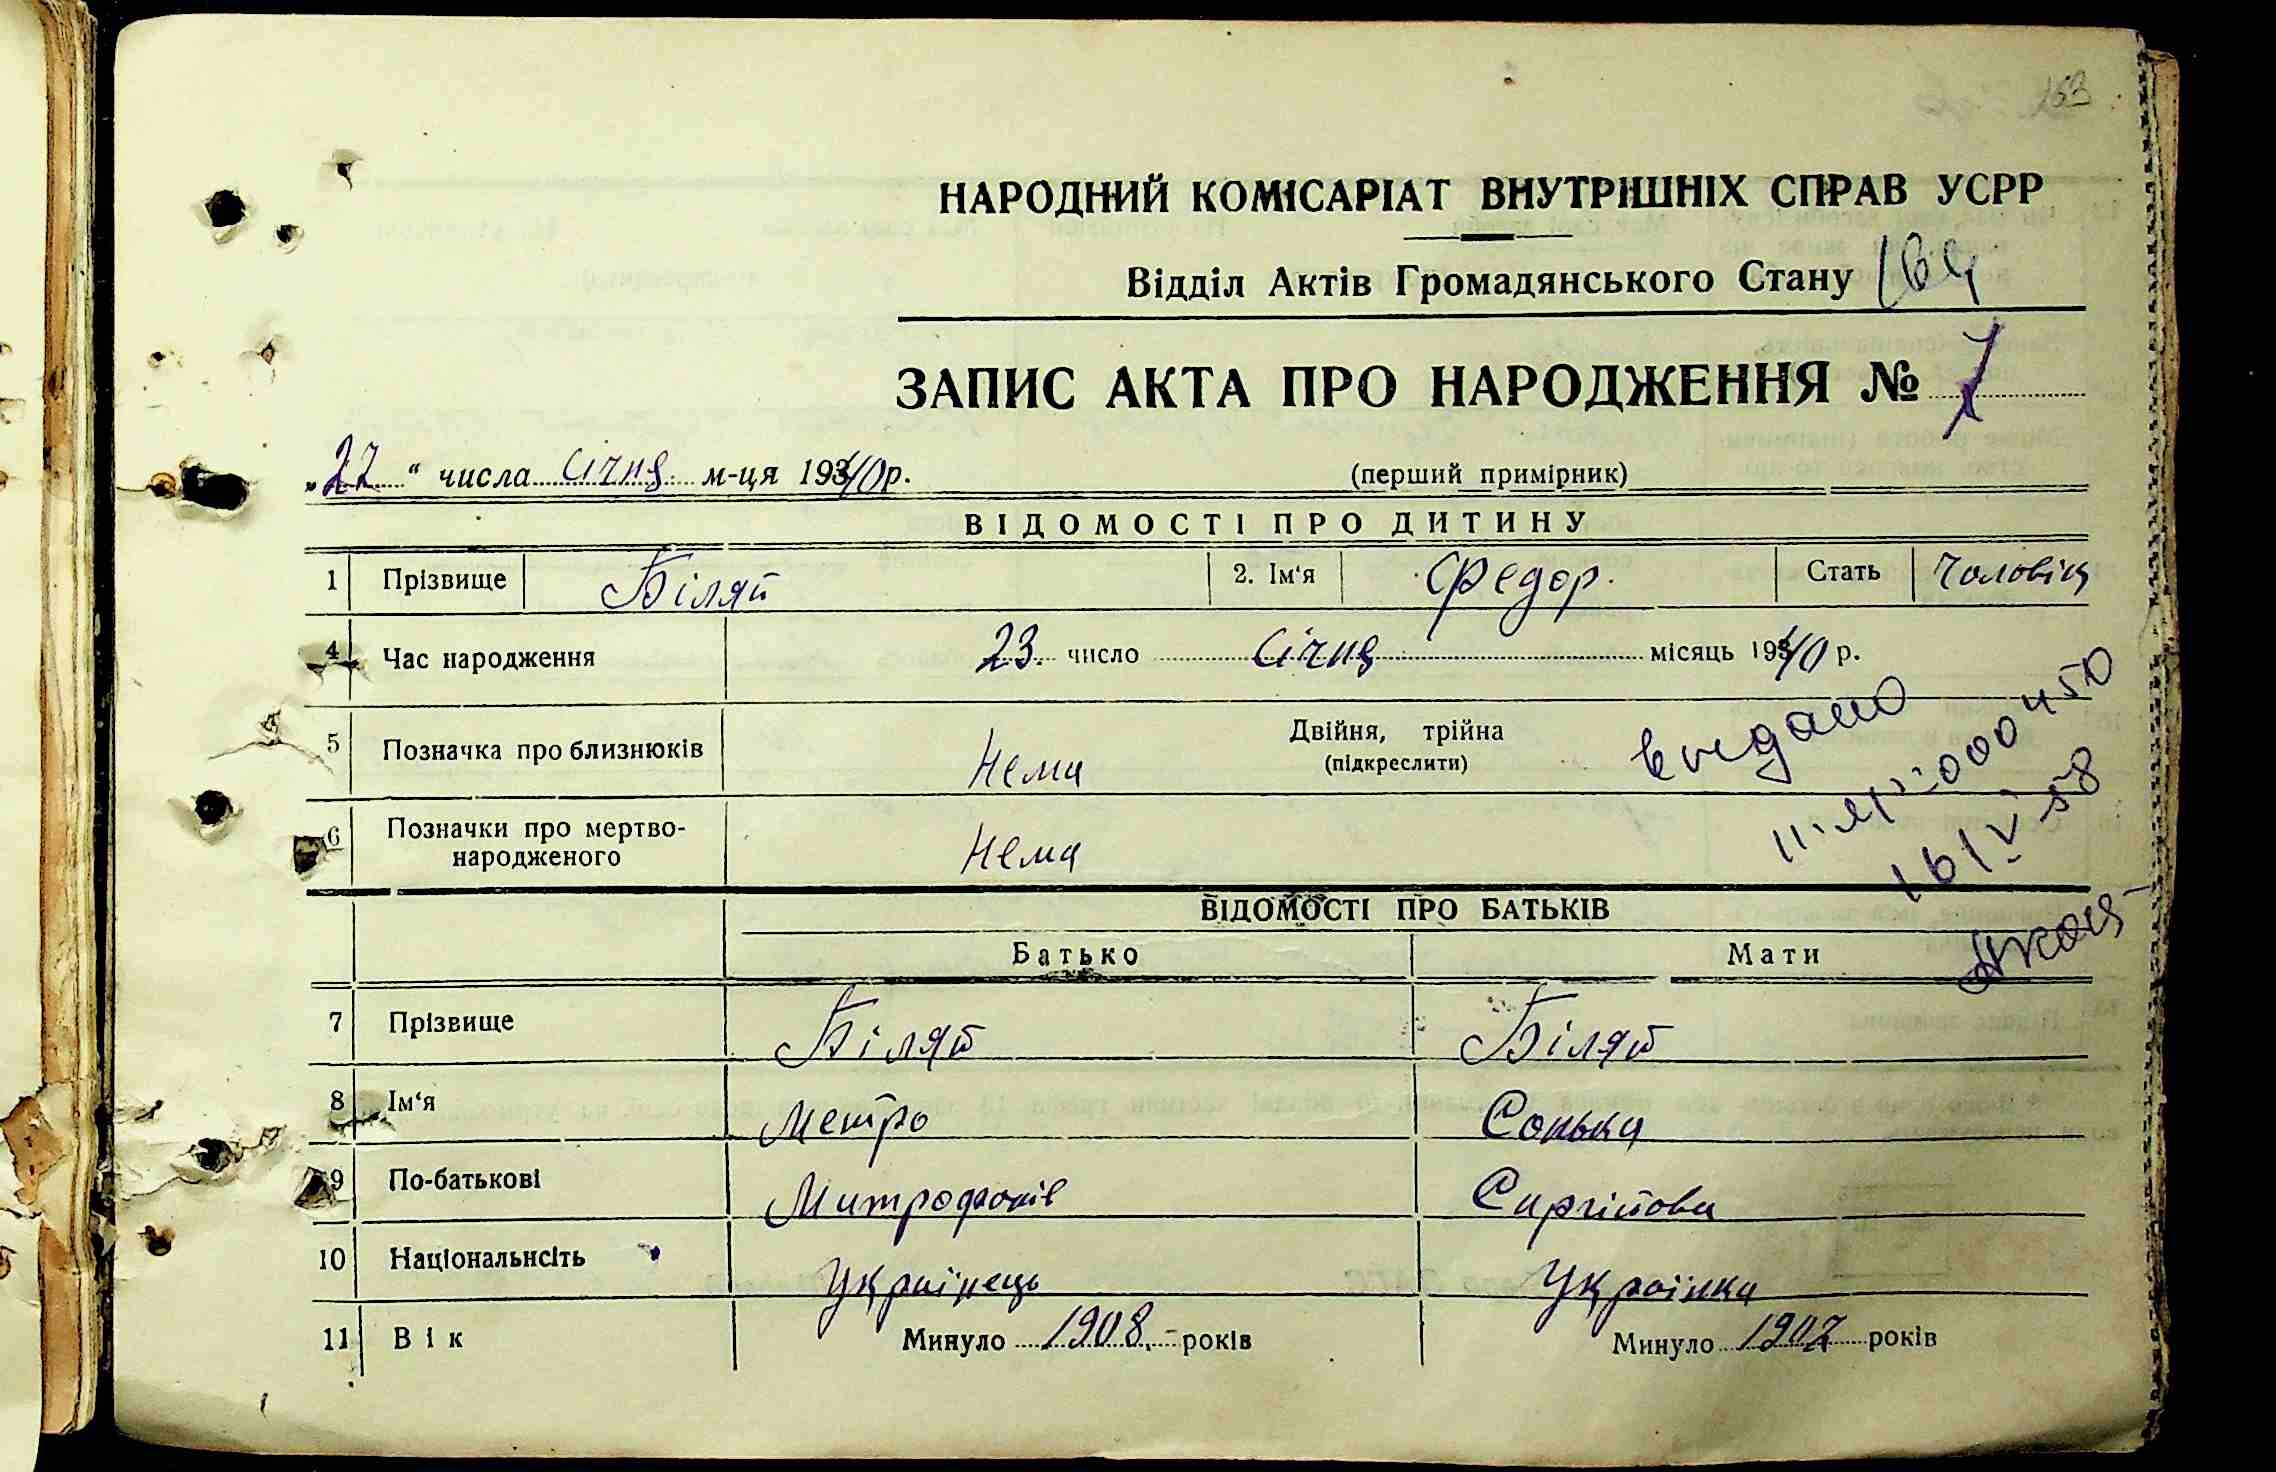 163
НАРОДНИЙ КОМІСАРІАТ ВНУТРІШНІХ СПРАВ УСРР
Відділ Актів Громадянського Стану
ЗАПИС АКТА ПРО НАРОДЖЕННЯ № 7
„22“ числа січня м-ця 1940 р. (перший примірник)
ВІДОМОСТІ ПРО ДИТИНУ
1 Прізвище Біляй 2. Ім‘я Федор. Стать Чоловіч
4 Час народження 23. число Січня місяць 1940 р.
5 Позначка про близнюків Нема Двійня, трійна (підкреслити)
видано
6 Позначки про мертвонародженого Нема
16/V-58
ВІДОМОСТІ ПРО БАТЬКІВ
Батько Мати
7 Прізвище Біляй Біляй
8 Ім‘я Метро Сонька
9 По-батькові Митрофонів Сиргійови
10 Національнсіть Українець Українка
11 Вік Минуло 1908. років Минуло 1907 років